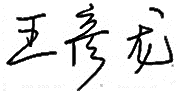 王彦龙